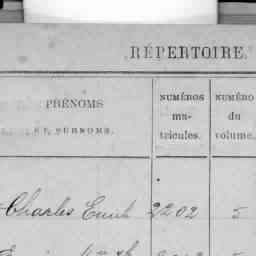 RÉPERTOIRE.
PRÉNOMS
ET SURNOMS.
NUMÉROS
ma-
tricules.
NUMÉRO
du
volume.
Charles Émile 2202 5